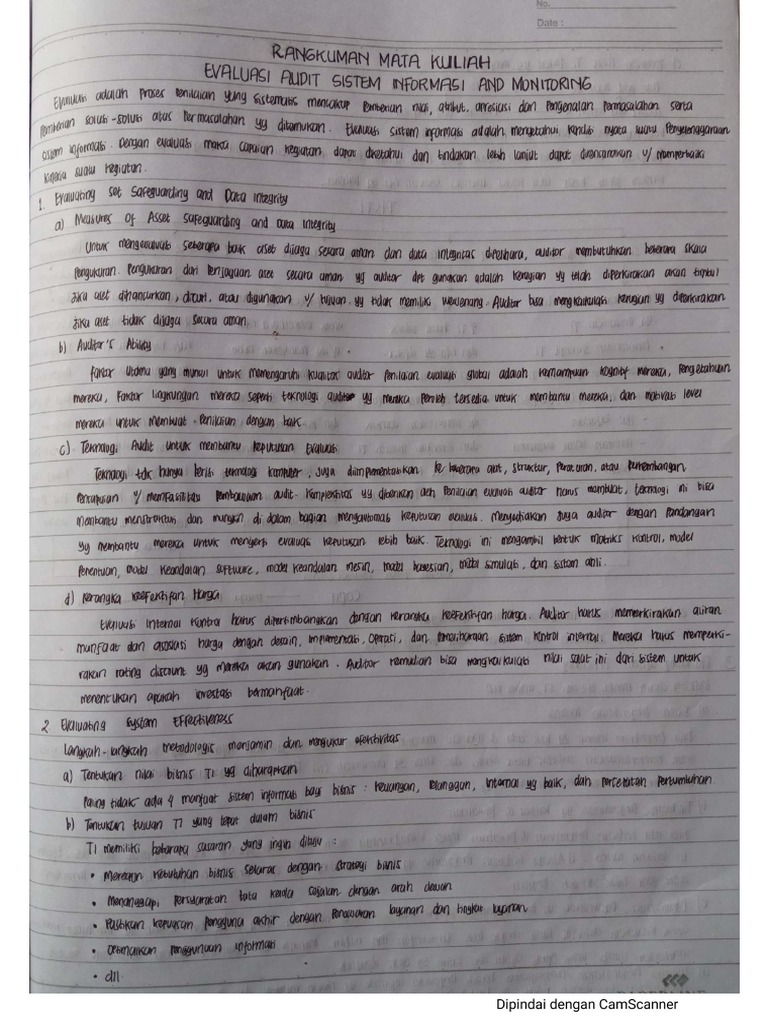 No.
Date :
RANGKUMAN MATA KULIAH
EVALUASI AUDIT SISTEM INFORMASI AND MONITORING
Evaluasi adalah proses penilaian yang sistematis mencakup pemberian nilai, atribut, apresiasi dan pengenalan permasalahan serta
pemberian solusi-solusi atas permasalahan yg ditemukan. Evaluasi sistem informasi adalah mengetahui kondisi nyata suatu penyelenggaraan
sistem informasi. Dengan evaluasi maka capaian kegiatan dapat diketahui dan tindakan lebih lanjut dapat direncanakan u/ memperbaiki
kinerja suatu kegiatan.
1. Evaluating set Safeguarding and Data Integrity
a) Measures of Asset Safeguarding and Data Integrity
Untuk mengevaluasi seberapa baik aset dijaga secara aman dan data integritas dipelihara, auditor membutuhkan beberapa skala
pengukuran. Pengukuran dari penjagaan aset secara aman yg auditor dpt gunakan adalah kerugian yg telah diperkirakan akan timbul
jika aset dihancurkan, dicuri, atau digunakan u/ tujuan yg tidak memiliki wewenang. Auditor bisa mengkalkulasi kerugian yg diperkirakan
jika aset tidak dijaga secara aman.
b) Auditor's Ability
Faktor utama yang muncul untuk memengaruhi kualitas auditor penilaian evaluasi global adalah kemampuan kognitif mereka, pengetahuan
mereka, faktor lingkungan mereka seperti teknologi audit yg mereka peroleh tersedia untuk membantu mereka, dan motivasi level
mereka untuk membuat penilaian dengan baik.
c) Teknologi Audit untuk membantu keputusan Evaluasi
Teknologi tdk hanya berisi teknologi komputer, juga diimplementasikan ke beberapa alat, struktur, peraturan, atau perkembangan
percakapan u/ memfasilitasi pembuatan audit. Kompleksitas yg diberikan oleh penilaian evaluasi auditor harus membuat, teknologi ini bisa
membantu menstruktur dan mungkin di dalam bagian mengautomasi keputusan evaluasi. Menyediakan juga auditor dengan pandangan
yg membantu mereka untuk mengerti evaluasi keputusan lebih baik. Teknologi ini mengambil bentuk matriks kontrol, model
penentuan, model keandalan software, model keandalan mesin, model bayesian, model simulasi, dan sistem ahli.
d) Kerangka Keefektifan Harga
Evaluasi internal kontrol harus dipertimbangkan dengan kerangka keefektifan harga. Auditor harus memperkirakan aliran
manfaat dan asosiasi harga dengan desain, implementasi, operasi, dan pemeliharaan sistem kontrol internal. Mereka harus memperki-
rakan rating discount yg mereka akan gunakan. Auditor kemudian bisa mengkalkulasi nilai saat ini dari sistem untuk
menentukan apakah investasi bermanfaat.
2. Evaluating System Effectiveness
Langkah-langkah metodologis menjamin dan mengukur efektivitas
a) Tentukan nilai bisnis TI yg diharapkan
Paling tidak ada 4 manfaat sistem informasi bagi bisnis : keuangan, pelanggan, internal yg baik, dan percepatan pertumbuhan
b) Tentukan tujuan TI yang tepat dalam bisnis
TI memiliki beberapa sasaran yang ingin dituju :
• Merespon kebutuhan bisnis selaras dengan strategi bisnis
• Menanggapi persyaratan tata kelola sejalan dengan arah dewan
• Pastikan kepuasan pengguna akhir dengan penawaran layanan dan tingkat layanan
• Optimalkan penggunaan informasi
• dll
Dipindai dengan CamScanner